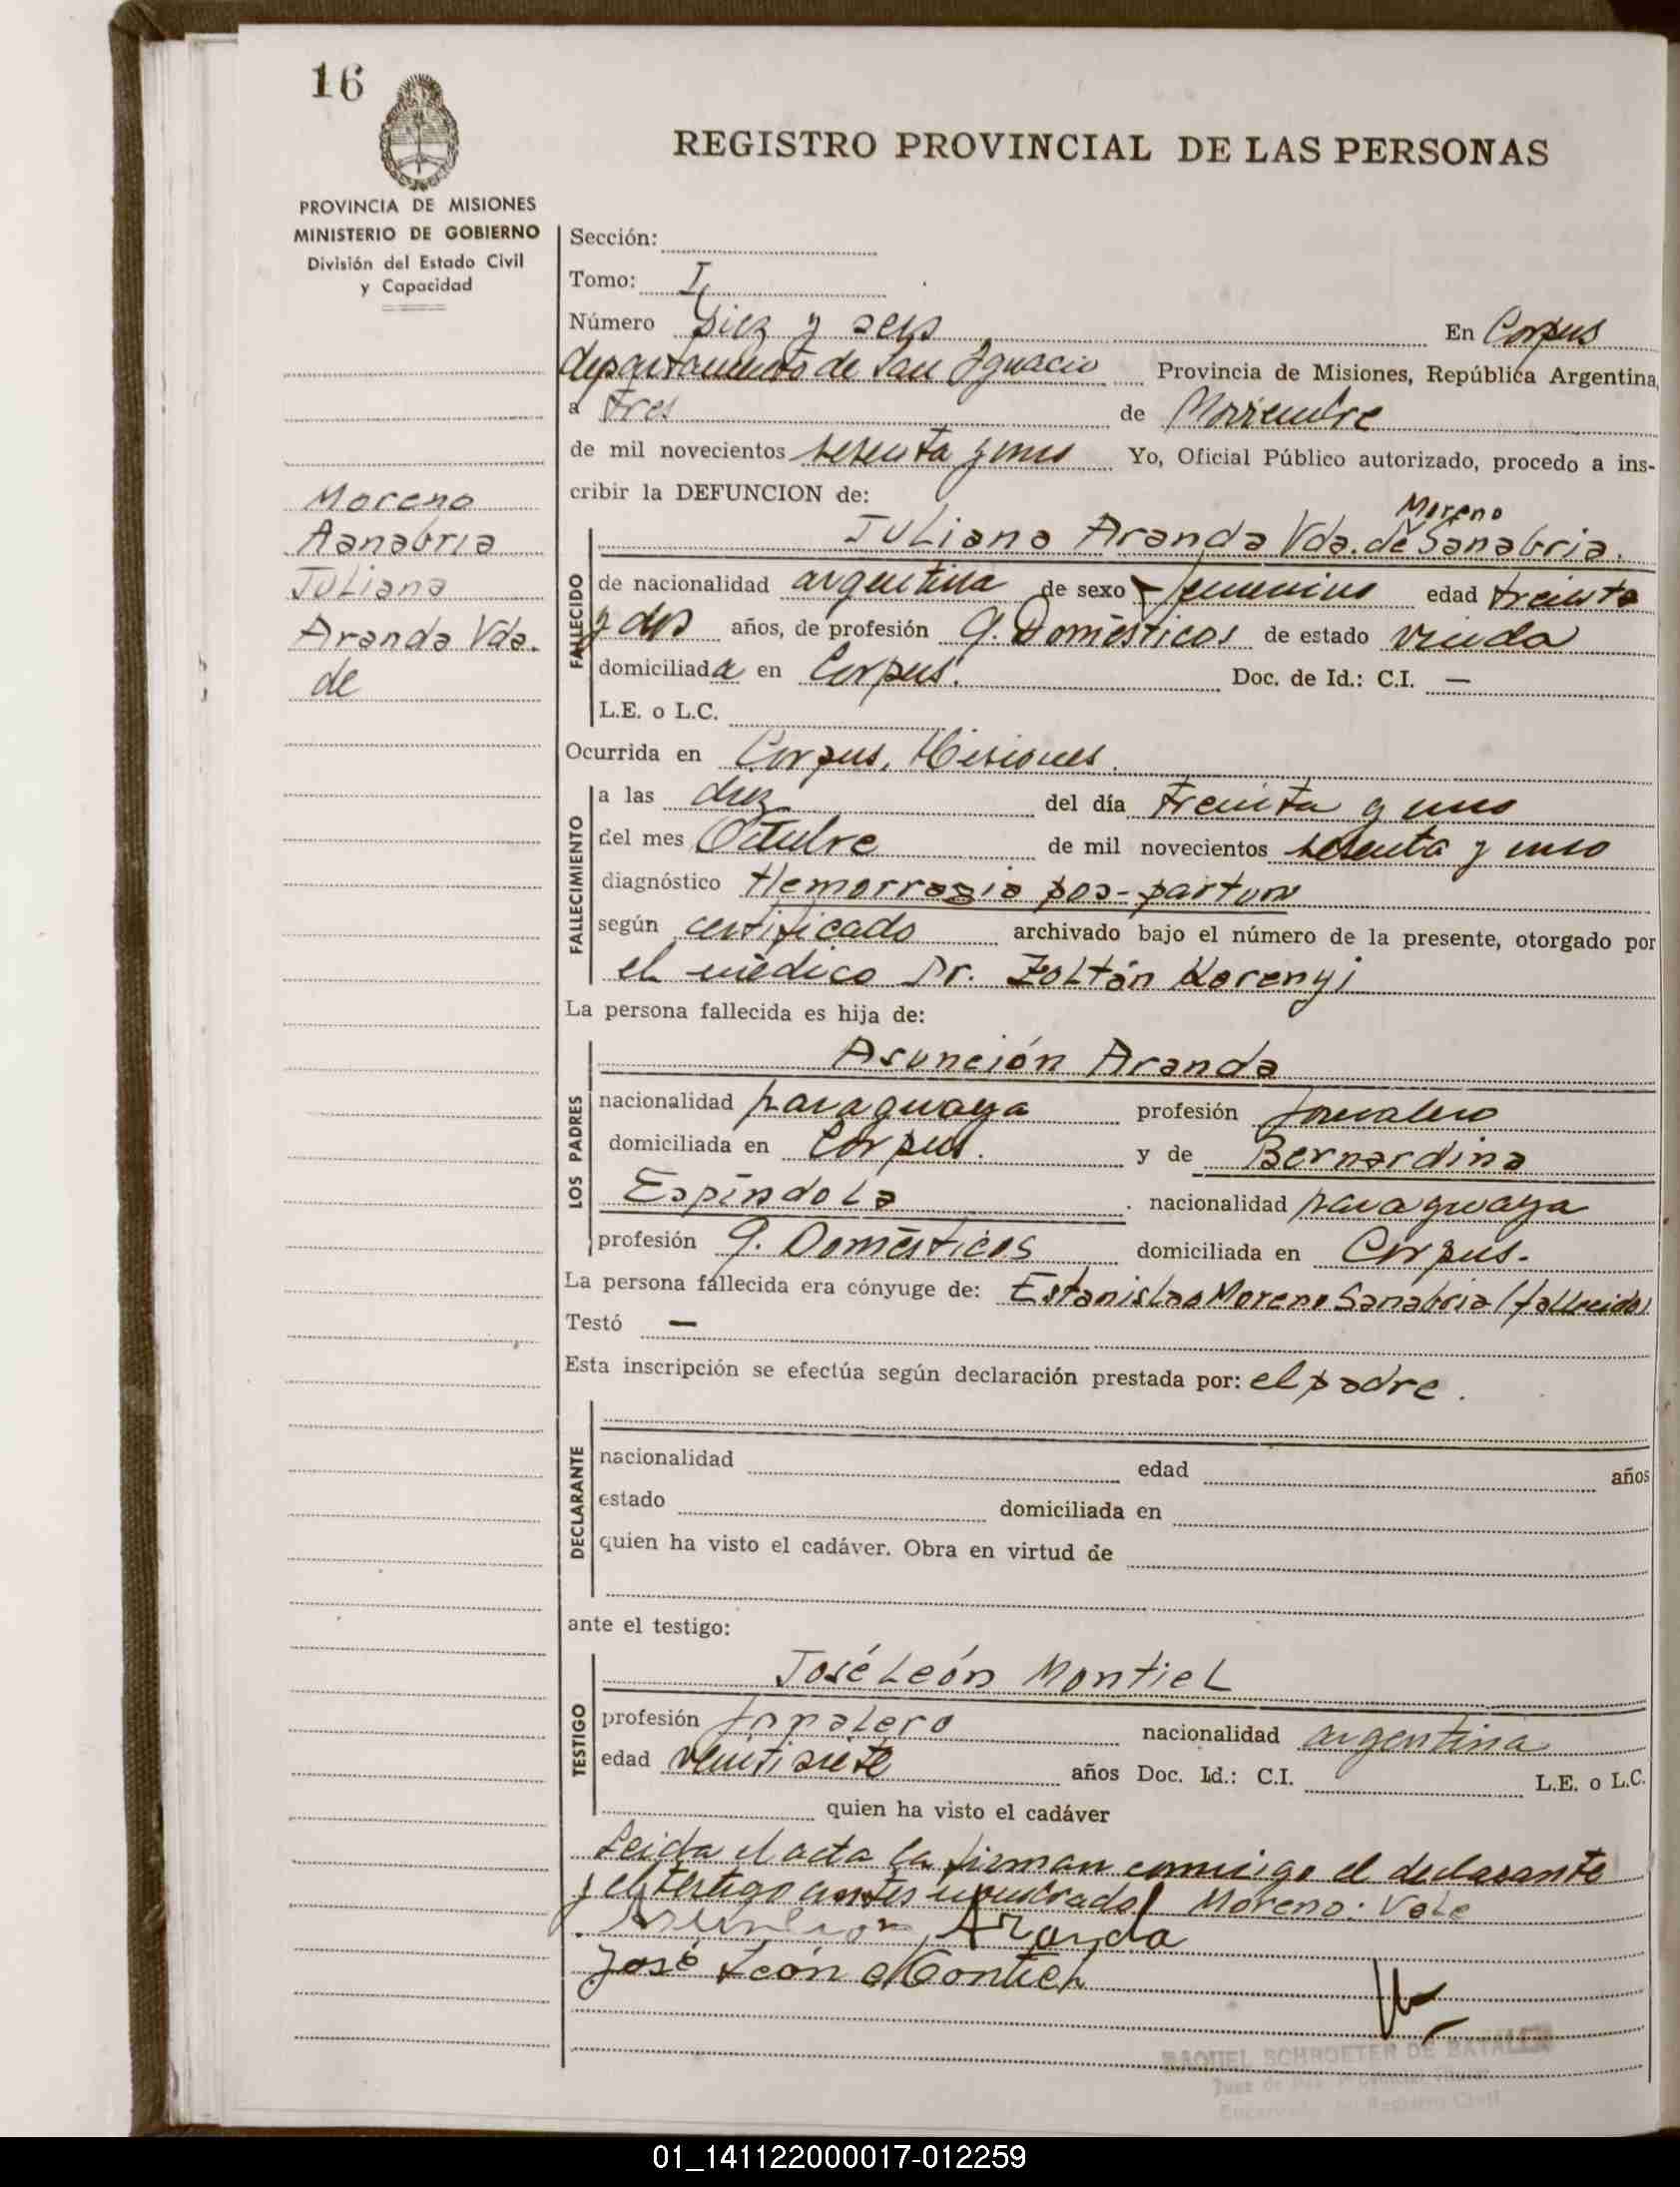 16
REGISTRO PROVINCIAL DE LAS PERSONAS
PROVINCIA DE MISIONES
MINISTERIO DE GOBIERNO
División del Estado Civil
y Capacidad
Moreno
Sanabria
Juliana
Aranda Vda.
de
Sección:
Tomo: I
Número Diez y seis En Corpus
departamento de San Ignacio Provincia de Misiones, República Argentina,
a tres de Noviembre
de mil novecientos sesenta y uno Yo, Oficial Público autorizado, procedo a ins-
cribir la DEFUNCION de:
Moreno
Juliana Aranda Vda. de Sanabria.
FALLECIDO
de nacionalidad argentina de sexo femenino edad treinta
y dos años, de profesión q. Domésticos de estado viuda
domiciliada en Corpus. Doc. de Id.: C.I. —
L.E. o L.C.
Ocurrida en Corpus, Misiones.
FALLECIMIENTO
a las diez del día treinta y uno
del mes Octubre de mil novecientos sesenta y uno
diagnóstico Hemorragia pos-partum
según certificado archivado bajo el número de la presente, otorgado por
el médico Dr. Zoltán Kerenyi
La persona fallecida es hija de:
LOS PADRES
Asunción Aranda
nacionalidad paraguaya profesión jornalero
domiciliada en Corpus. y de Bernardina
Espíndola. nacionalidad paraguaya
profesión q. Domésticos domiciliada en Corpus.
La persona fallecida era cónyuge de: Estanislao Moreno Sanabria (fallecido)
Testó —
Esta inscripción se efectúa según declaración prestada por: el padre.
DECLARANTE
nacionalidad edad años
estado domiciliada en
quien ha visto el cadáver. Obra en virtud de
ante el testigo:
TESTIGO
José León Montiel
profesión jornalero nacionalidad argentina
edad veintisiete años Doc. Id.: C.I. L.E. o L.C.
quien ha visto el cadáver
Leída el acta la firman conmigo el declarante
y el testigo antes nombrado. Moreno: Vale
Asuncion Aranda
José León Montiel
RAQUEL SCHROETER DE BATALLA
Juez de Paz
Encargada del Registro Civil
01_141122000017-012259